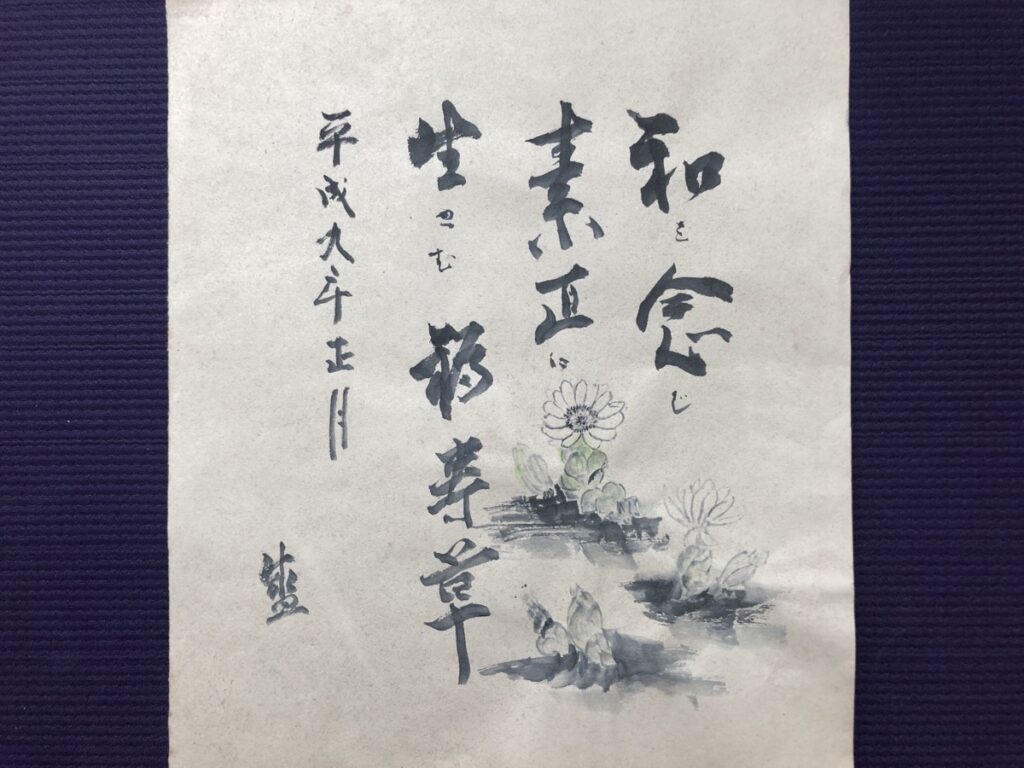 和を念む
素直に
生てむ 福寿草
平成九年正月